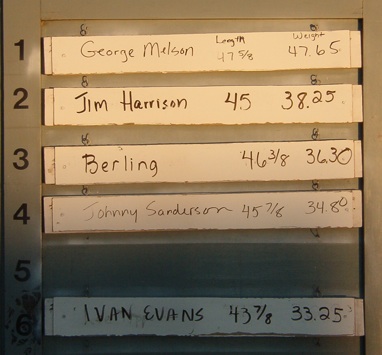 Length Weight
1 George Melson 47 5/8 47.65
2 Jim Harrison 45 38.25
3 Berling 46 3/8 36.30
4 Johnny Sanderson 45 7/8 34.80
5
6 IVAN EVANS 43 7/8 33.25